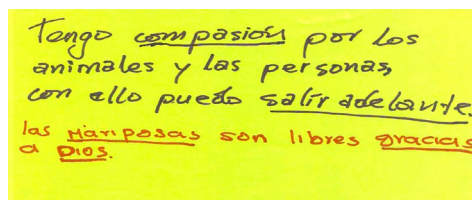 Tengo compasión por los
animales y las personas,
con ello puedo salir adelante.
las Mariposas son libres gracias
a Dios.